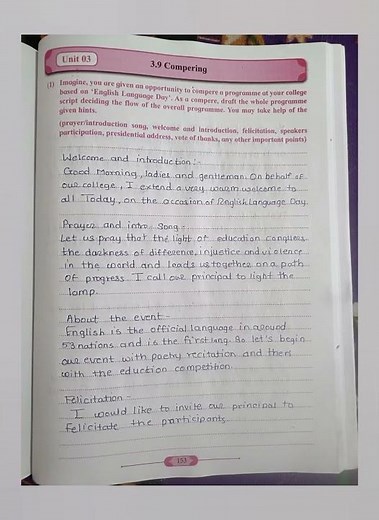 Unit 03
3.9 Compering
(1) Imagine, you are given an opportunity to compere a programme at your college
based on 'English Language Day'. As a compere, draft the whole programme
script deciding the flow of the overall programme. You may take help of the
given hints.
(prayer/introduction song, welcome and introduction, felicitation, speakers
participation, presidential address, vote of thanks, any other important points)
Welcome and introduction:-
Good Morning, ladies and gentleman. On behalf of
our college, I extend a very warm welcome to
all Today, on the occasion of English language Day.
Prayer and intro. Song:-
Let us pray that the light of education conquers
the darkness of difference, injustice and violence
in the world and leads us together on a path
of progress. I call our principal to light the
lamp.
About the event -
English is the official language in around
53 nations and is the first lang. So let's begin
our event with poetry recitation and then
with the eduction competition.
Felicitation -
I would like to invite our principal to
felicitate the participants.
153